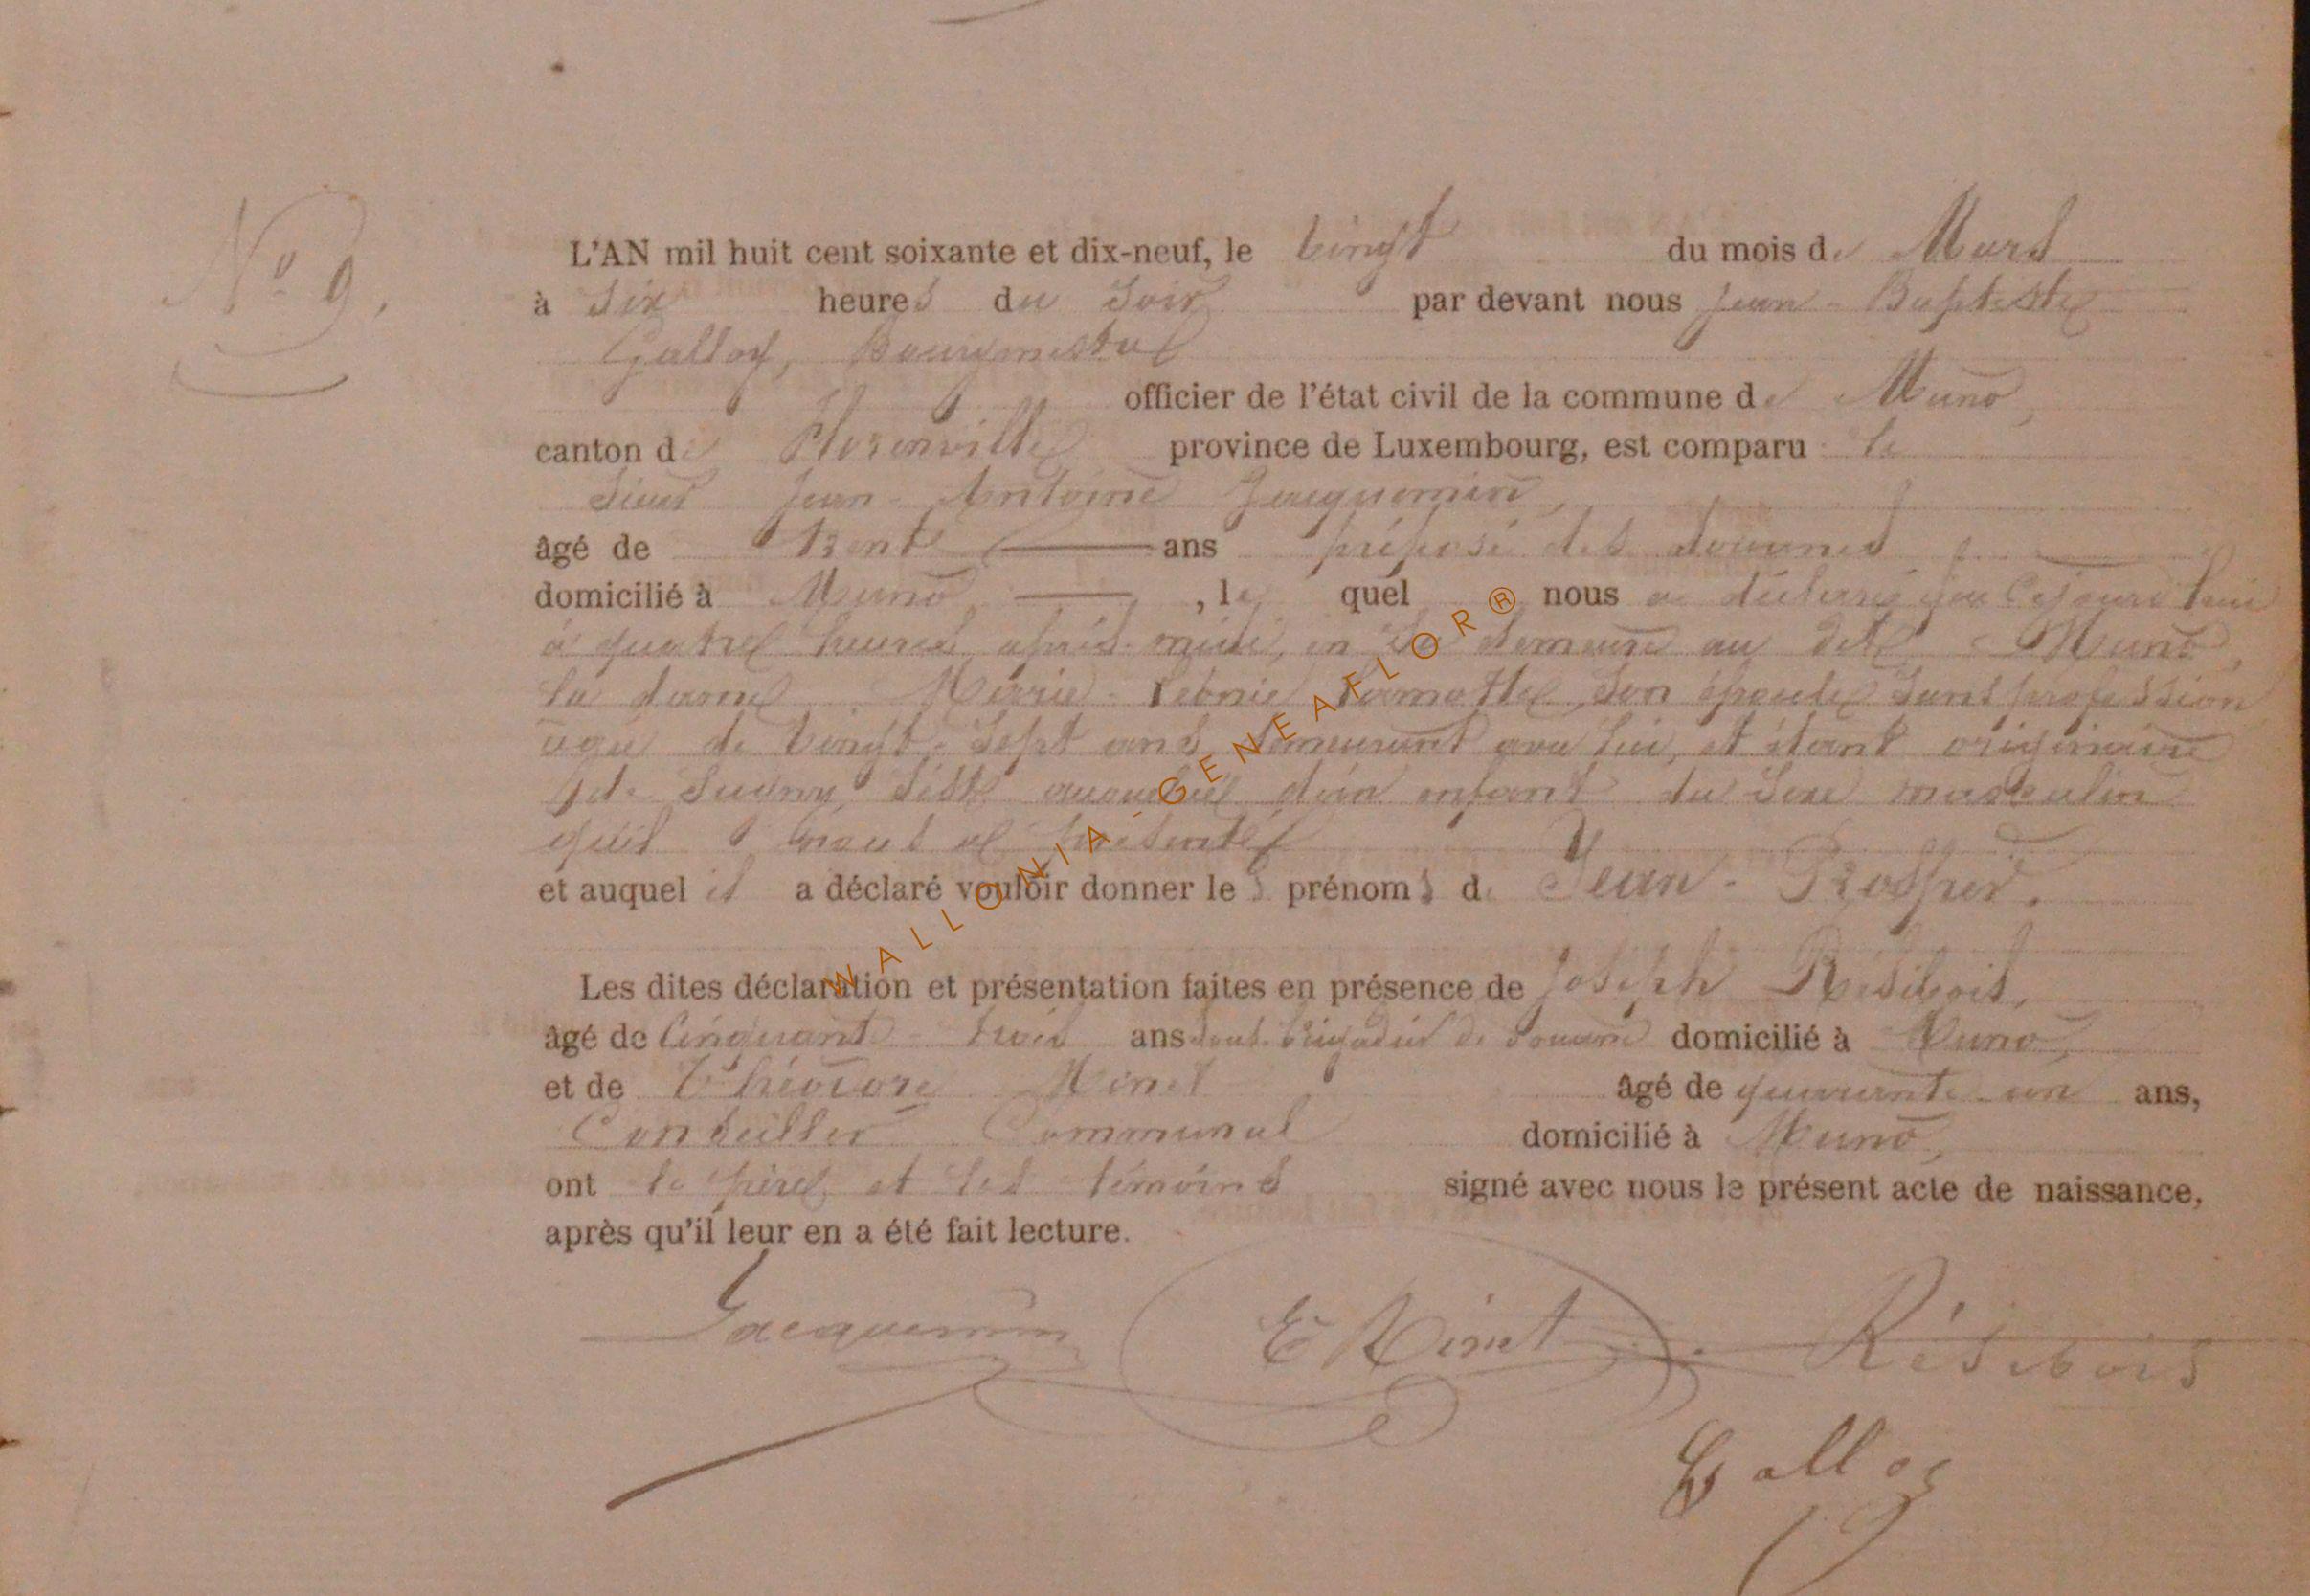 N° 9.
L'AN mil huit cent soixante et dix-neuf, le vingt du mois de Mars
à Six heures du Soir par devant nous Jean-Baptiste
Galloy, Bourgmestre
officier de l'état civil de la commune de Muno,
canton de Florenville province de Luxembourg, est comparu le
Sieur Jean-Antoine Jacquemin,
âgé de Trente ans préposé des douanes
domicilié à Muno, le quel nous a déclaré que Cejourd'hui
à quatre heures après-midi, en Sa demeure au dit Muno,
la dame Marie-Léonie Lamotte, Son épouse, Sans profession
agée de Vingt-Sept ans demeurant avec lui, et étant originaire
de Sugny, s'est accouchée d'un enfant du Sexe masculin
qu'il nous a présenté
et auquel il a déclaré vouloir donner les prénoms de Jean-Prosper.
Les dites déclaration et présentation faites en présence de Joseph Résibois,
âgé de Cinquante-trois ans sous-brigadier de douane domicilié à Muno,
et de Théodore Hinet âgé de quarante-un ans,
Conseiller Communal domicilié à Muno,
ont le père, et les témoins signé avec nous le présent acte de naissance,
après qu'il leur en a été fait lecture.
Jacquemin Résibois
Galloy
WALLONIA - GENEAFLOR®